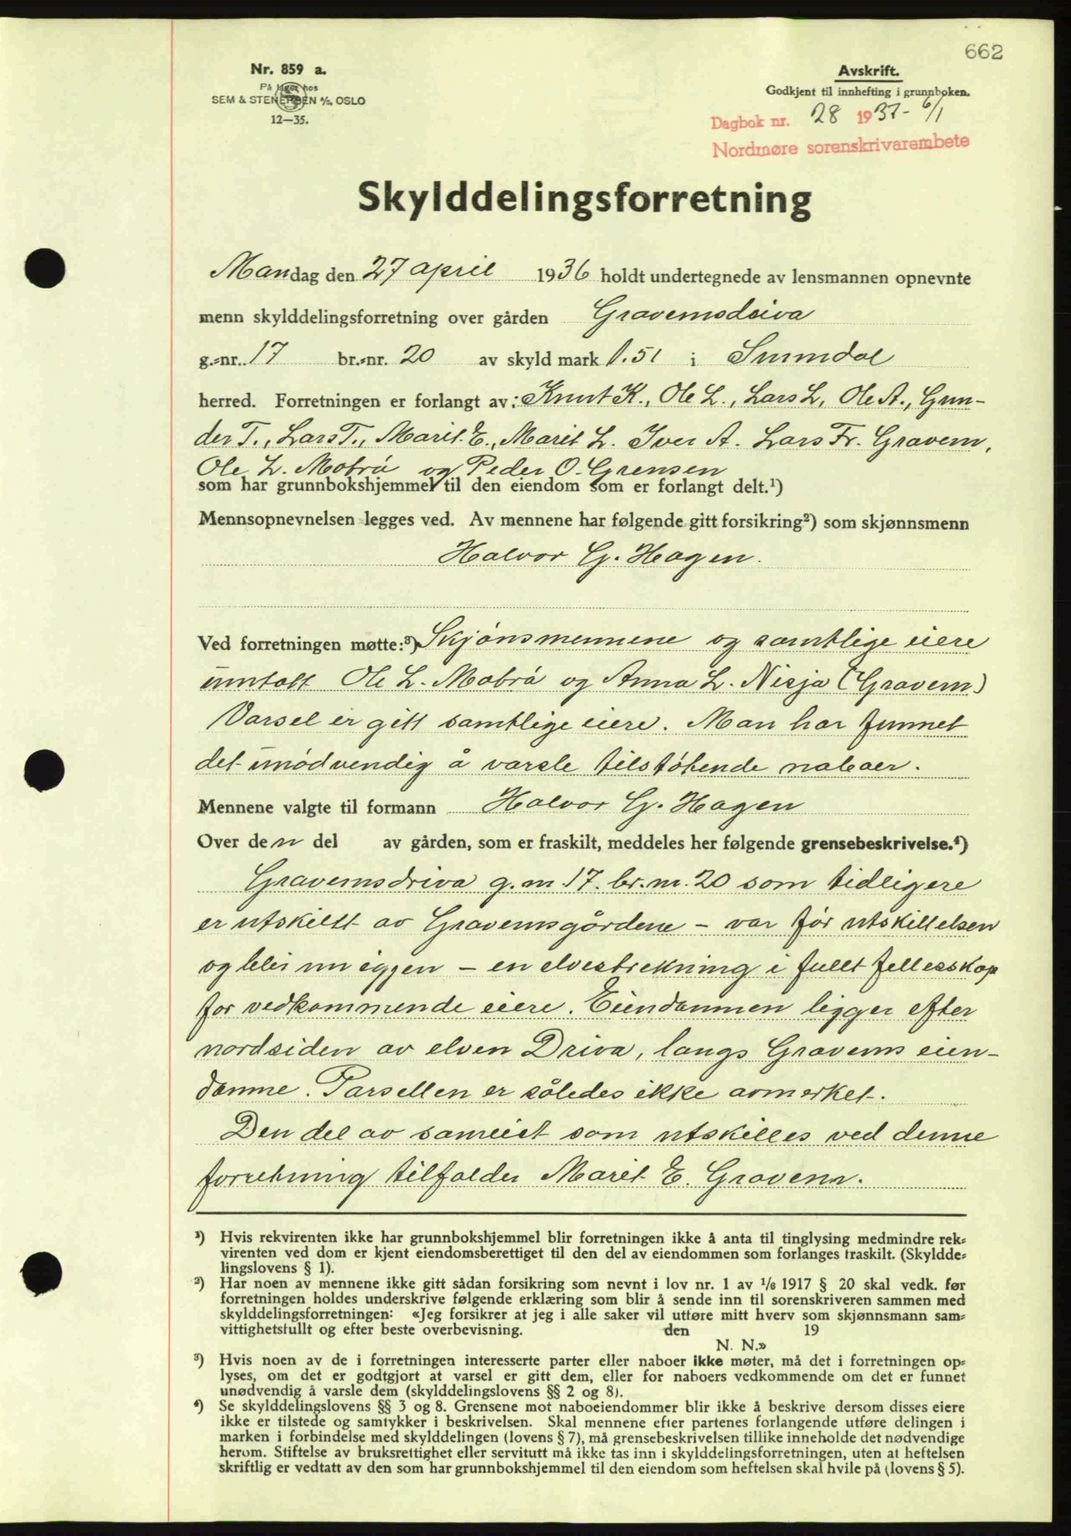 662
Nr. 859 a.
På lager hos
SEM & STENERSEN A/S, OSLO
12—35.
Avskrift.
Godkjent til innhefting i grunnboken.
Dagbok nr. 28 1937- 6/1
Nordmøre sorenskrivarembete
Skylddelingsforretning
Mandag den 27 april 1936 holdt undertegnede av lensmannen opnevnte
menn skylddelingsforretning over gården Gravemsdriva
g.-nr. 17 br.-nr. 20 av skyld mark 0.51 i Sunndal
herred. Forretningen er forlangt av: Knut K., Ole L., Lars L, Ole A., Gun-
der T., Lars T., Marit E., Marit L. Iver A. Lars Fr. Gravem,
Ole L. Mobrå og Peder O. Grensen
som har grunnbokshjemmel til den eiendom som er forlangt delt.¹)
Mennsopnevnelsen legges ved. Av mennene har følgende gitt forsikring²) som skjønnsmenn
Halvor G. Hagen.
Ved forretningen møtte:³) Skjönsmennene og samtlige eiere
unntatt Ole L. Mobrå og Anna L. Nisja (Gravem)
Varsel er gitt samtlige eiere. Man har funnet
det unödvendig å varsle tilstøtende naboer.
Mennene valgte til formann Halvor G. Hagen
Over den del av gården, som er fraskilt, meddeles her følgende grensebeskrivelse.⁴)
Gravemsdriva g.nr. 17. br.nr. 20 som tidligere
er utskillt av Gravemsgårdene – var för utskillelsen
og blir nu igjen – en elvestrekning i fullt fellesskap
for vedkommende eiere. Eiendommen ligger efter
nordsiden av elven Driva, langs Gravems eien-
domme. Parsellen er således ikke avmerket.
Den del av sameiet som utskilles ved denne
forretning tilfalder Marit E. Gravem.
¹) Hvis rekvirenten ikke har grunnbokshjemmel blir forretningen ikke å anta til tinglysing medmindre rek-
virenten ved dom er kjent eiendomsberettiget til den del av eiendommen som forlanges fraskilt. (Skyldde-
lingslovens § 1).
²) Har noen av mennene ikke gitt sådan forsikring som nevnt i lov nr. 1 av 1/6 1917 § 20 skal vedk. før
forretningen holdes underskrive følgende erklæring som blir å sende inn til sorenskriveren sammen med
skylddelingsforretningen: «Jeg forsikrer at jeg i alle saker vil utføre mitt hverv som skjønnsmann sam-
vittighetsfullt og efter beste overbevisning. den 19
N. N.»
³) Hvis noen av de i forretningen interesserte parter eller naboer ikke møter, må det i forretningen op-
lyses, om det er godtgjort at varsel er gitt dem, eller for naboers vedkommende om det er funnet
unødvendig å varsle dem (skylddelingslovens §§ 2 og 8).
⁴) Se skylddelingslovens §§ 3 og 8. Grensene mot naboeiendommer blir ikke å beskrive dersom disses eiere
ikke er tilstede og samtykker i beskrivelsen. Skal mennene efter partenes forlangende utføre delingen i
marken i forbindelse med skylddelingen (lovens § 7), må grensebeskrivelsen tillike inneholde det nødvendige
herom. Stiftelse av bruksrettighet eller servitutt må ikke tas inn i skylddelingsforretningen, uten at heftelsen
skriftlig er vedtatt av den som har grunnbokshjemmel til den eiendom som heftelsen skal hvile på (lovens § 5).